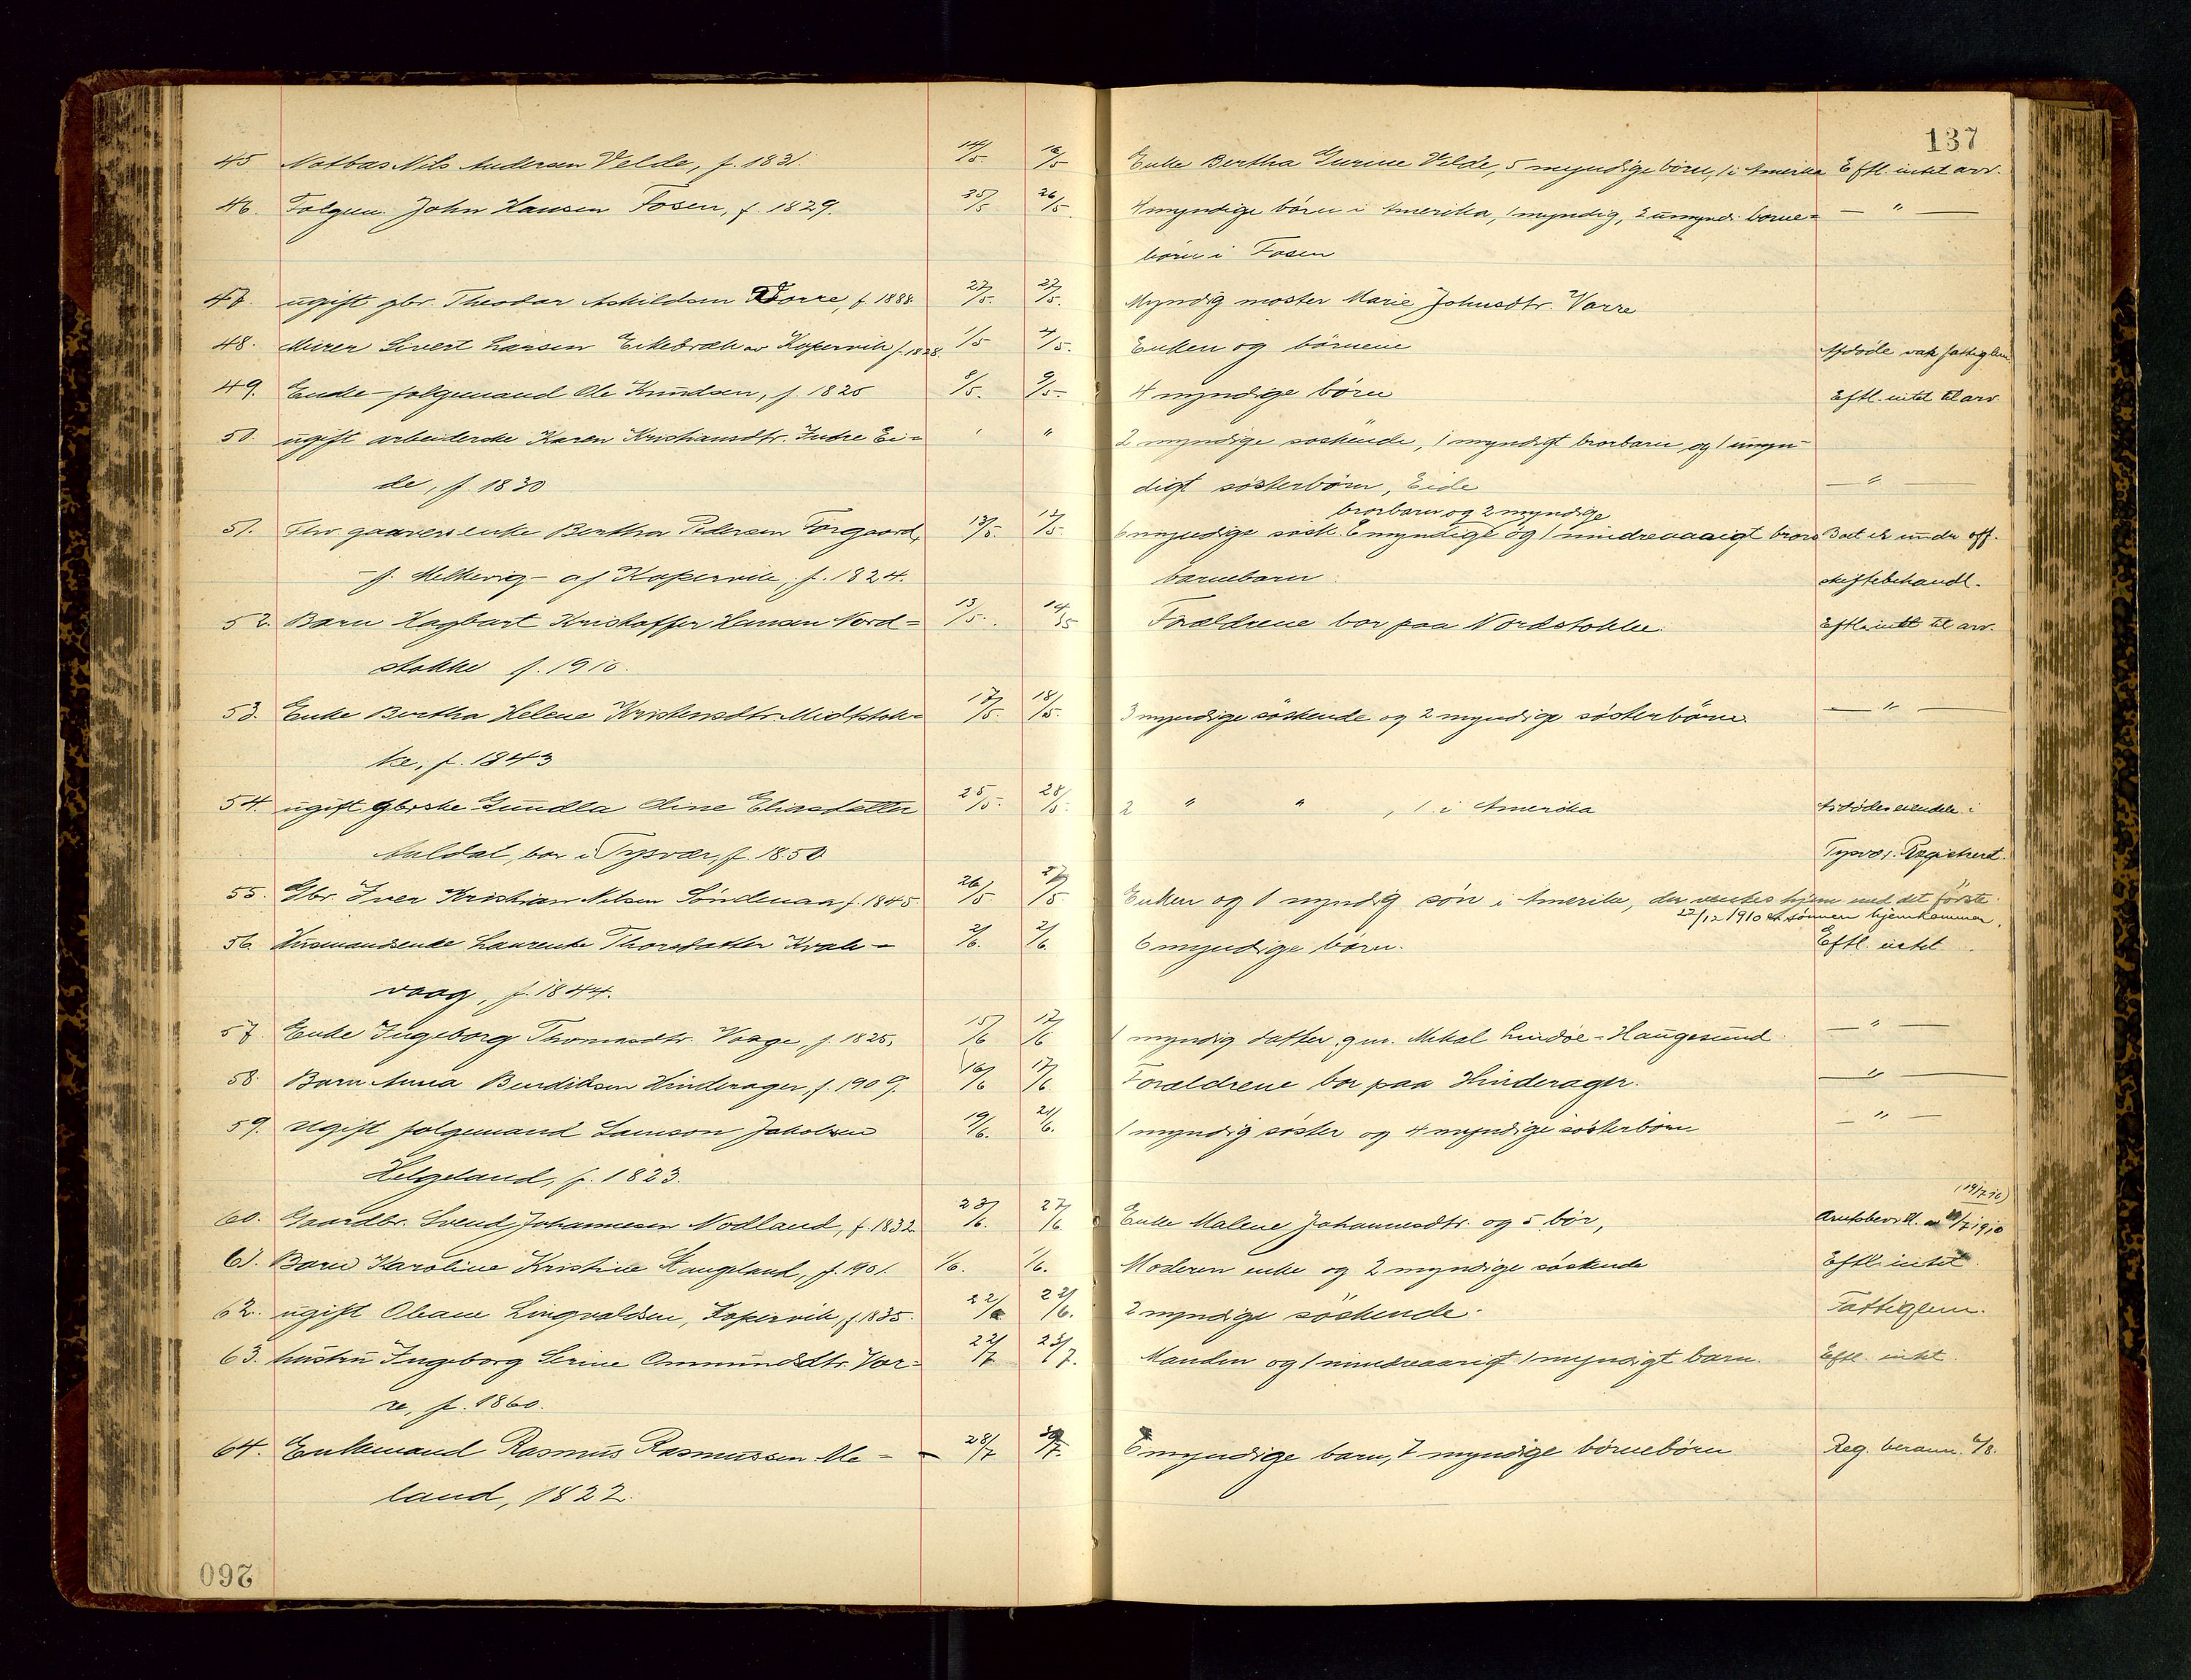 137
45 Notbas Nils Andersen Velde, f. 1831. 14/5. 16/5 Enke Bertha Gurine Velde, 5 myndige börn, 1 i Amerika Eftl. intet arv.
46. Folgem. John Hansen Fosen, f. 1829. 25/5 26/5. 4 myndige börn i Amerika, 1 myndig, 2 umynd. borne= — " —
börn i Fosen
47. ugift gbr. Theodor Askildsen Vorre, f. 1888. 27/5. 27/5. Myndig moster Marie Johnsdtr. Vorre
48. Murer Sivert Larsen Erkebræk av Kopervik f. 1828. 1/5 4/5. Enken og börnene Afdöde var fattiglem
49. Enke-folgemand Ole Knudsen, f. 1825 8/5. 9/5- 4 myndige börn Eftl. intet til arv.
50. ugift arbeiderske Karen Kristiansdtr. Indre Ei= " " 2 myndige söskende, 1 myndigt brorbarn og 1 umyn=
de, f. 1830 digt sösterbörn, Eide — " —
brorbarn og 2 myndige
51. Fhv. gaardbr. enke Bertha Pedersen Torgaard, 13/5. 17/5. 6 myndige sösk. 6 myndige og 1 mindreaarigt brors Boet er under off.
- f. Melkevig - af Kopervik, f. 1824. barnebarn skiftebehandl.
52. Barn Hagbart Kristoffer Hansen Nord= 13/5. 14/5 Forældrene bor paa Nordstokke. Eftl. intet til arv.
stokke f. 1910.
53. Enke Bertha Helene Kristensdtr. Midtstok= 17/5. 18/5. 3 myndige söskende og 2 myndige sösterbörn. — " —
ke, f. 1843
54. ugift gbrske Gundla Oline Eliasdatter 25/5. 28/5. 2 " " , 1 i Amerika Afdödes eiendele i
Auldal, bor i Tysvær, f. 1850. Tysvær. Registreret.
55. Gbr. Iver Kristian Nilsen Söndenaa f. 1845. 26/5 27/5. Enken og 1 myndig sön i Amerika, der ventes hjem med det förste.
22/12 1910 er sönnen hjemkommen.
56. Husmandsenke Laurentse Thorsdatter Kvale= 2/6. 2/6. 6 myndige börn. Eftl. intet
vaag, f. 1844.
57. Enke Ingeborg Thomasdtr. Vaage, f. 1825, 15/6 17/6 1 myndig datter, gm. Mikal Lindöe - Haugesund — " —
58. Barn Anna Bendiksen Hinderager, f. 1909. 16/6 17/6. Forældrene bor paa Hinderager. — " —
59. Ugift folgemand Samson Jakobsen 19/6. 21/6. 1 myndig söster og 4 myndige sösterbörn — " —
Helgeland, f. 1823.
(19/7 10)
60. Gaardbr. Svend Johannesen Nodland, f. 1832. 23/6. 27/6 Enke Malene Johannesdtr. og 5 bör, Amtsbevill. av /7 1910
61. Barn Karoline Kristine Haugeland, f. 1901. 1/6. 1/6. Moderen enke og 2 myndige söskende Eftl. intet.
62. ugift Oleane Lingvaldsen, Kopervik, f. 1835. 22/6 22/6. 2 myndige söskende. Fattiglem.
63. hustru Ingeborg Serine Ommundsdtr. Vor= 22/7 23/7. Manden og 1 mindreaarigt 1 myndigt barn. Eftl. intet.
re, f. 1860.
64. Enkemand Rasmus Rasmussen Me= 28/7 30/7. 6 myndige barn, 7 myndige börnebörn Reg. beram. 6/8.
land, 1822.
260